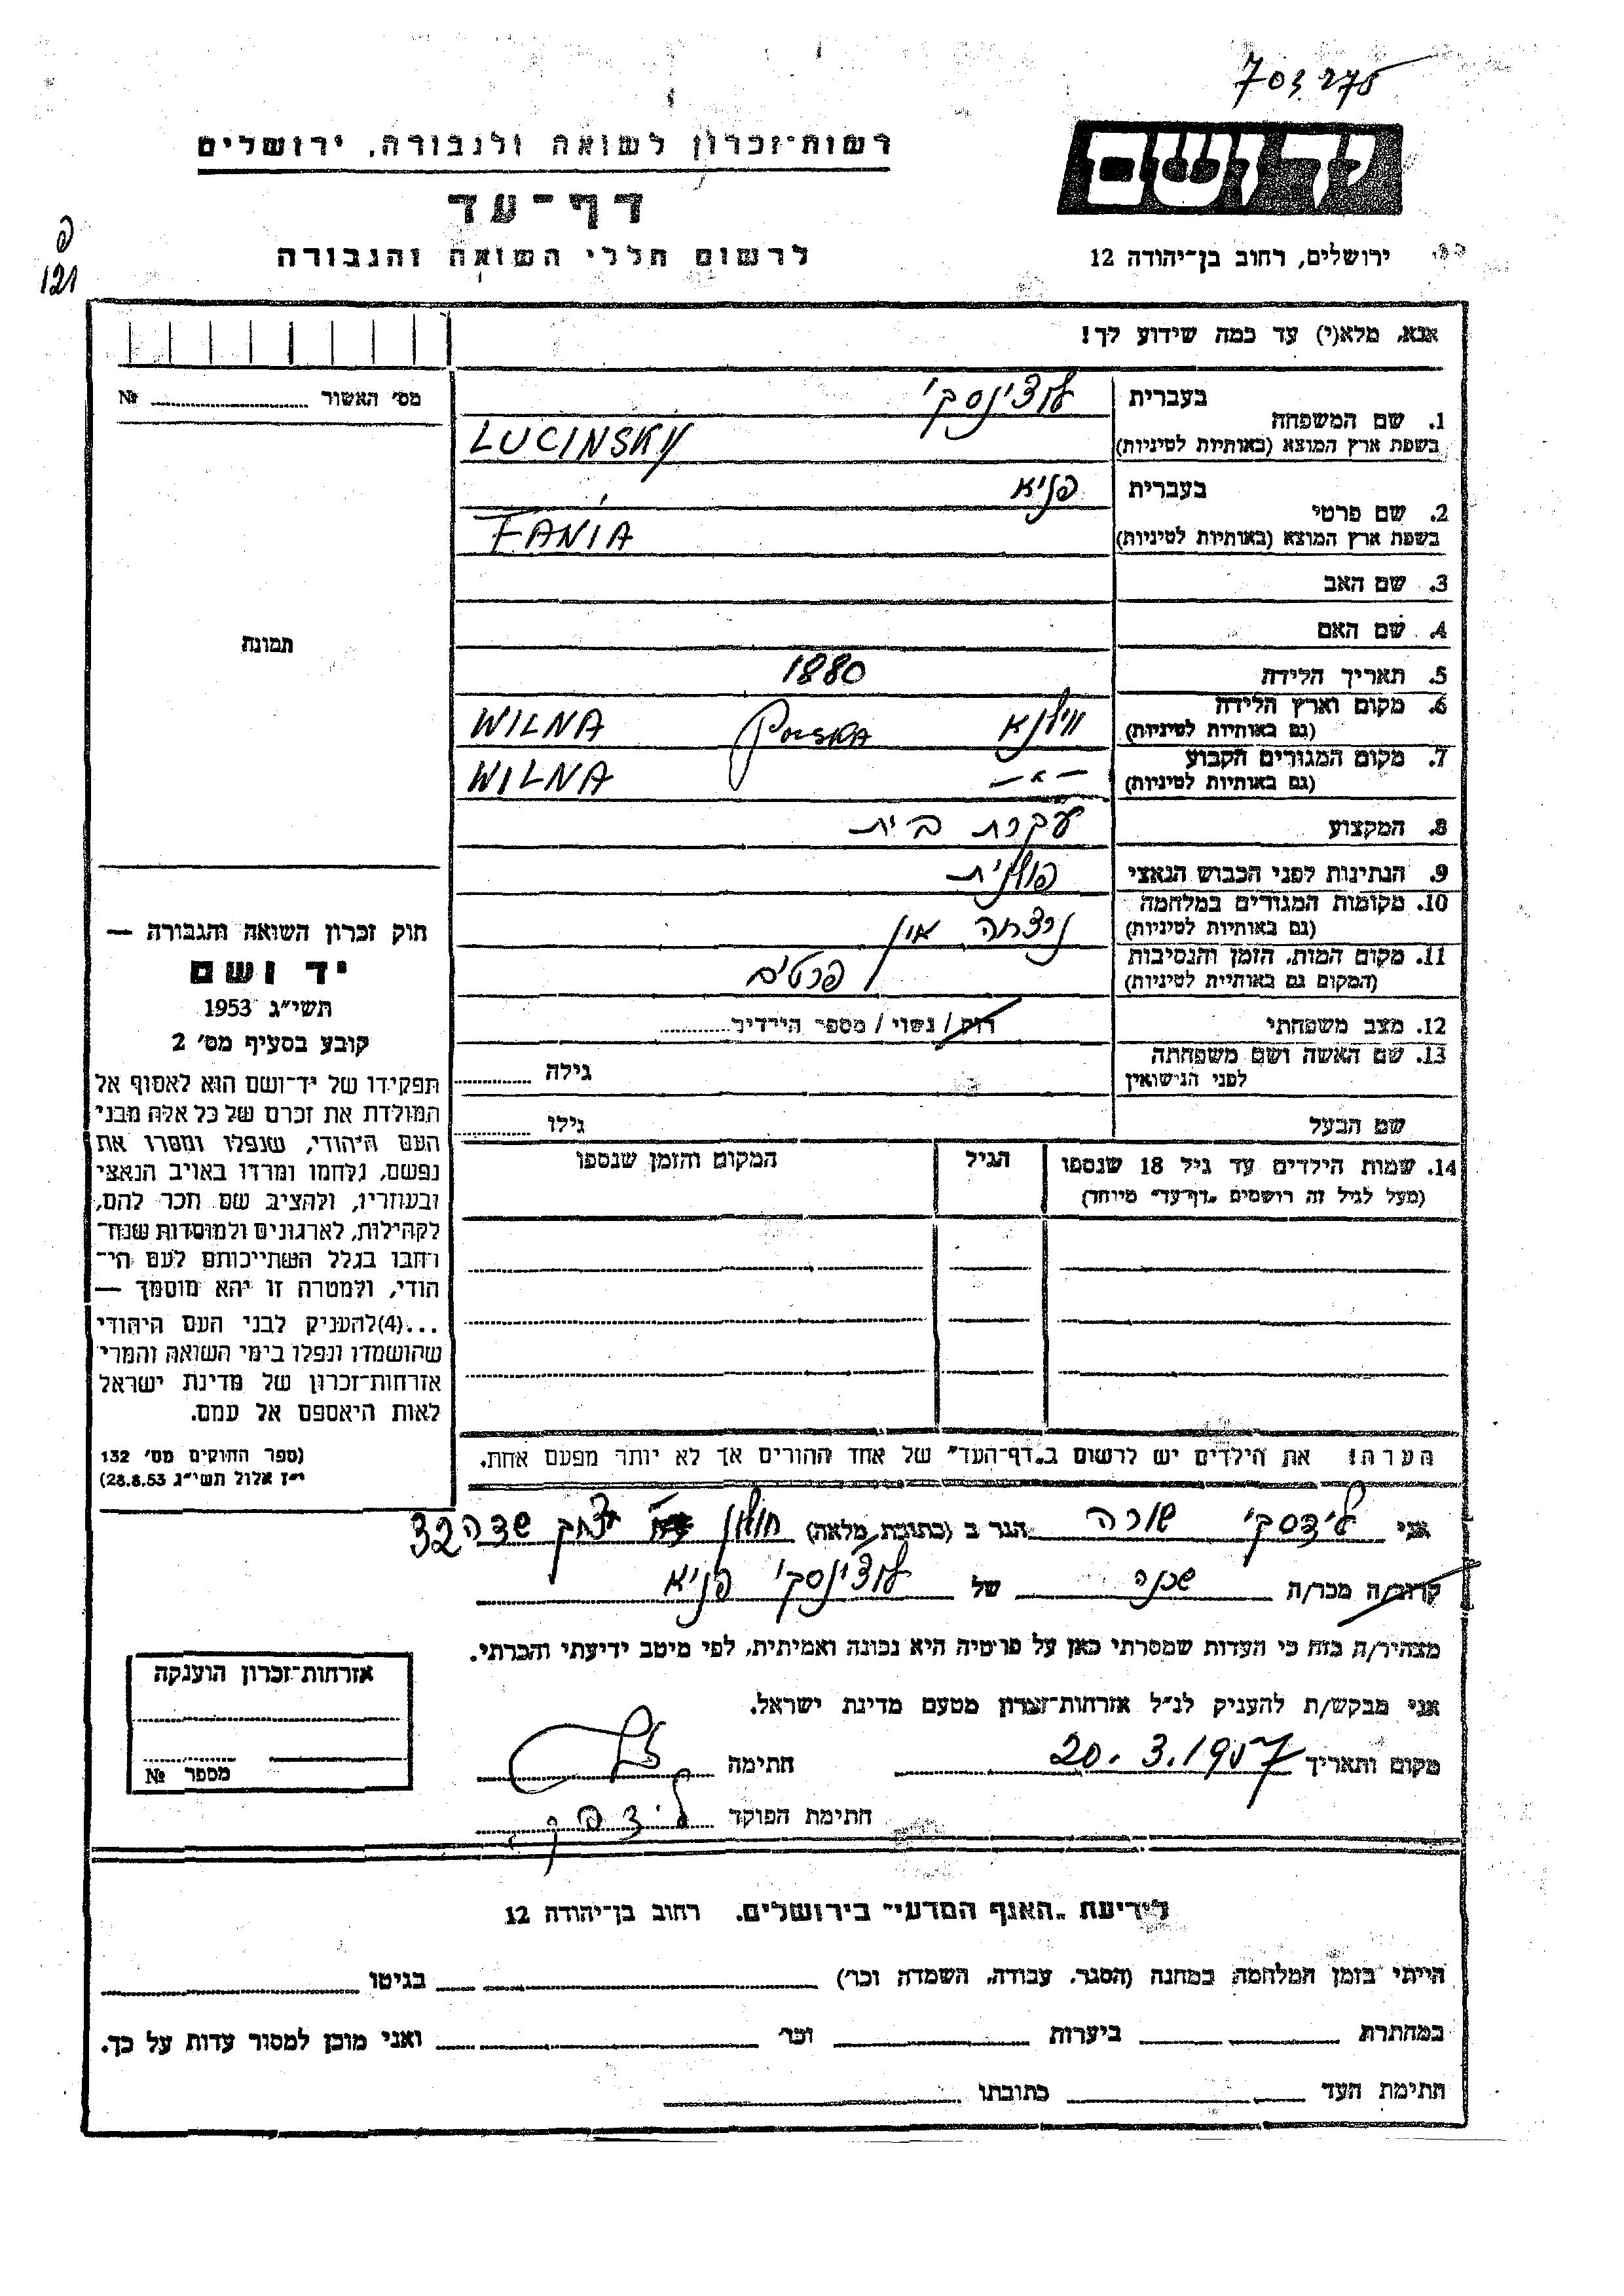 703275
יד ושם
רשות-זכרון לשואה ולגבורה, ירושלים
דף-עד
לרשום חללי השואה והגבורה
ירושלים, רחוב בן-יהודה 12
פ
121
אנא, מלא(י) עד כמה שידוע לך!
מס׳ האשור № 
1. שם המשפחה
בעברית לוצינסקי
בשפת ארץ המוצא (באותיות לטיניות) LUCINSKY
2. שם פרטי
בעברית פניא
בשפת ארץ המוצא (באותיות לטיניות) FANIA
3. שם האב
4. שם האם
תמונה
5. תאריך הלידה 1880
6. מקום וארץ הלידה
(גם באותיות לטיניות) ווילנא POLSKA WILNA
7. מקום המגורים הקבוע
(גם באותיות לטיניות) -"- WILNA
8. המקצוע עקרת בית
9. הנתינות לפני הכבוש הנאצי פולנית
10. מקומות המגורים במלחמה
(גם באותיות לטיניות)
11. מקום המות, הזמן והנסיבות
(המקום גם באותיות לטיניות)
אין
פרטים
12. מצב משפחתי רווק / נשוי / מספר הילדים
13. שם האשה ושם משפחתה
לפני הנישואין גילה
שם הבעל גילו
14. שמות הילדים עד גיל 18 שנספו
(מעל לגיל זה רושמים „דף-עד״ מיוחד)
הגיל
המקום והזמן שנספו
הערה! את הילדים יש לרשום ב„דף-העד״ של אחד ההורים אך לא יותר מפעם אחת.
חוק זכרון השואה והגבורה —
יד ושם
תשי״ג 1953
קובע בסעיף מס׳ 2
תפקידו של יד-ושם הוא לאסוף אל
המולדת את זכרם של כל אלה מבני
העם היהודי, שנפלו ומסרו את
נפשם, נלחמו ומרדו באויב הנאצי
ובעוזריו, ולהציב שם וזכר להם,
לקהילות, לארגונים ולמוסדות שנח-
רבו בגלל השתייכותם לעם הי-
הודי, ולמטרה זו יהא מוסמך —
...(4)להעניק לבני העם היהודי
שהושמדו ונפלו בימי השואה והמרי
אזרחות-זכרון של מדינת ישראל
לאות היאספם אל עמם.
(ספר החוקים מס׳ 132
י״ז אלול תשי״ג 28.8.53)
אני לידסקי שורה הגר ב (כתובת מלאה) חולון יצחק שדה 32
קרוב/ה מכר/ה שכנה של לוצינסקי פניא
מצהיר/ה בזה כי העדות שמסרתי כאן על פרטיה היא נכונה ואמיתית, לפי מיטב ידיעתי והכרתי.
אני מבקש/ת להעניק לנ״ל אזרחות-זכרון מטעם מדינת ישראל.
מקום ותאריך 20.3.1957 חתימה
חתימת הפוקד
אזרחות-זכרון הוענקה
מספר №
לידיעת „האגף המדעי״ בירושלים. רחוב בן-יהודה 12
הייתי בזמן המלחמה במחנה (הסגר, עבודה, השמדה וכו׳) בגיטו
במחתרת ביערות וכו׳ ואני מוכן למסור עדות על כך.
חתימת העד כתובתו